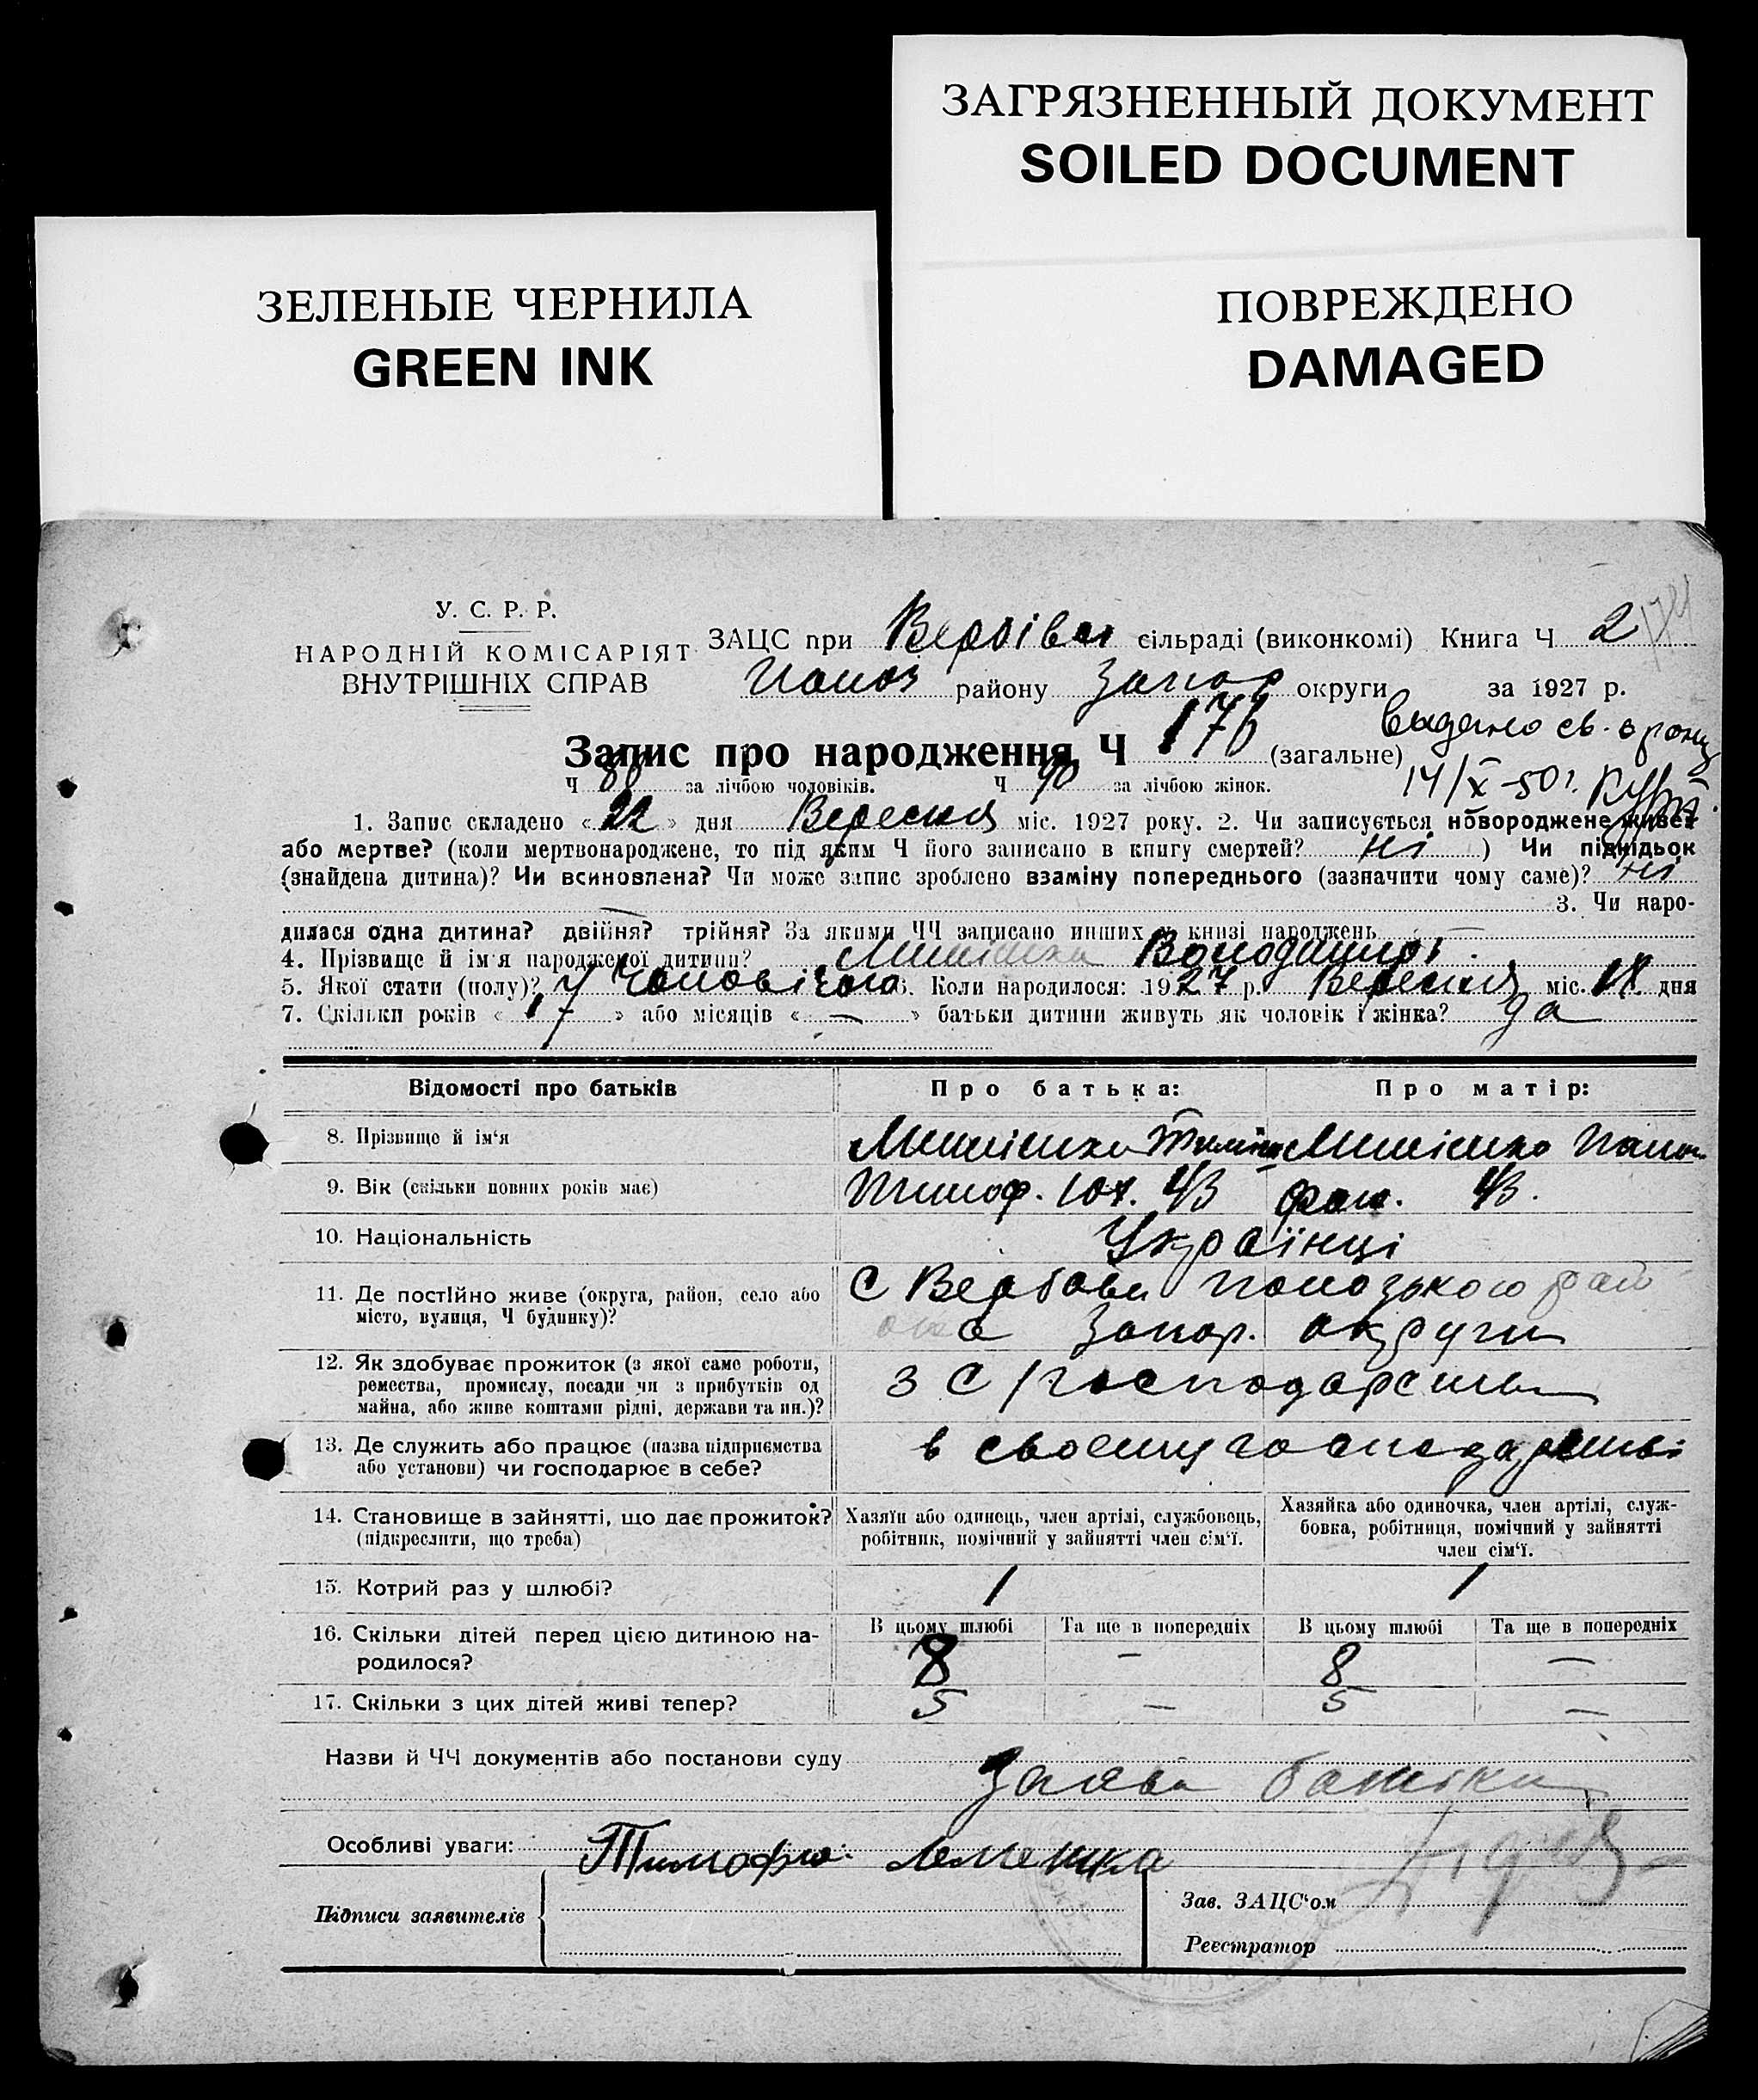 ЗАГРЯЗНЕННЫЙ ДОКУМЕНТ
SOILED DOCUMENT
ЗЕЛЕНЫЕ ЧЕРНИЛА
GREEN INK
ПОВРЕЖДЕНО
DAMAGED
У. С. Р. Р.
НАРОДНІЙ КОМІСАРІЯТ
ВНУТРІШНІХ СПРАВ
ЗАЦС при сільраді (виконкомі) Книга Ч 2
району Запор округи за 1927 р.
Запис про народження, Ч 176 (загальне)
видано св.
14/X-50 г.
Ч 88 за лічбою чоловіків. Ч 90 за лічбою жінок.
1. Запис складено « 22 » дня Вересня міс. 1927 року. 2. Чи записується новороджене живе
або мертве? (коли мертвонароджене, то під яким Ч його записано в книгу смертей? Ні ) Чи підкідьок
(знайдена дитина)? Чи всиновлена? Чи може запис зроблено взаміну попереднього (зазначити чому саме)? Ні
3. Чи наро-
дилася одна дитина? двійня? трійня? За якими ЧЧ записано инших в книзі народжень —
4. Прізвище й ім'я народженої дитини? Володимір
5. Якої стати (полу)? Чоловічого 6. Коли народилося: 1927 р. Вересня міс. 18 дня
7. Скільки років « » або місяців « — » батьки дитини живуть як чоловік і жінка? да
Відомості про батьків
Про батька:
Про матір:
8. Прізвище й ім'я
9. Вік (скільки повних років має)
Тимоф. 43
43.
10. Національність
Українці
11. Де постійно живе (округа, район, село або
місто, вулиця, Ч будинку)?
С Вербове Пологзького рай
она Запор. округи
12. Як здобуває прожиток (з якої саме роботи,
ремества, промислу, посади чи з прибутків од
майна, або живе коштами рідні, держави та ин.)?
З С/господарства
13. Де служить або працює (назва підприємства
або установи) чи господарює в себе?
в своему господарстві
14. Становище в зайнятті, що дає прожиток?
(підкреслити, що треба)
Хазяїн або одинець, член артілі, службовець,
робітник, помічний у зайнятті член сім'ї.
Хазяйка або одиночка, член артілі, служ-
бовка, робітниця, помічний у зайнятті
член сім'ї.
15. Котрий раз у шлюбі?
1
1
16. Скільки дітей перед цією дитиною на-
родилося?
В цьому шлюбі
Та ще в попередніх
В цьому шлюбі
Та ще в попередніх
8 — 8 —
17. Скільки з цих дітей живі тепер?
5 — 5 —
Назви й ЧЧ документів або постанови суду
Заява батька
Особливі уваги:
Підписи заявителів
Зав. ЗАЦС'ом
Реєстратор